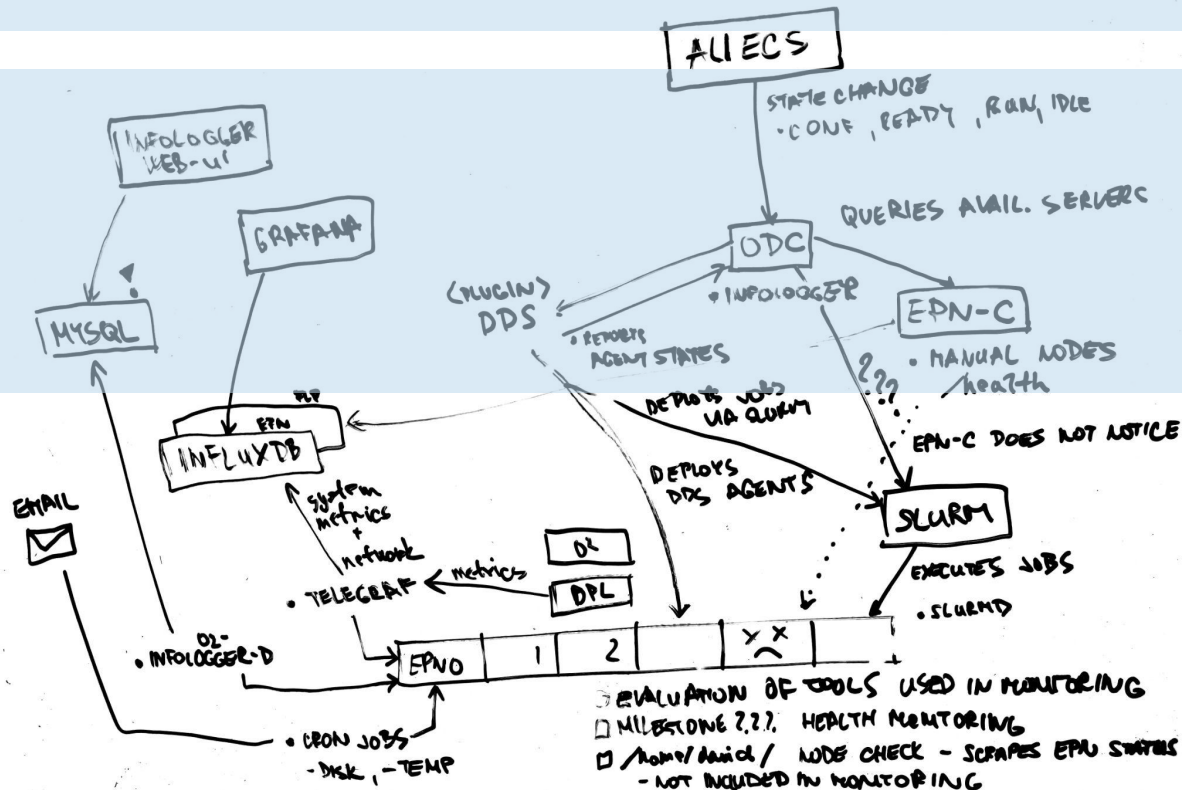 ALIECS
STATE CHANGE
• CONF, READY, RUN, IDLE
INFOLOGGER
WEB-UI
GRAFANA
QUERIES AVAIL. SERVERS
ODC
• INFOLOGGER
<PLUGIN>
DDS
EPN-C
MYSQL
• REPORTS
AGENT STATES
• MANUAL NODES
health
???
FLP
EPN
INFLUXDB
DEPLOYS JOBS
VIA SLURM
EPN-C DOES NOT NOTICE
DEPLOYS
DDS AGENTS
SLURM
EMAIL
system
metrics
+
network
O2
metrics
• TELEGRAF
DPL
EXECUTES JOBS
• SLURMD
O2-
• INFOLOGGER-D
EPN0 1 2
EVALUATION OF TOOLS USED IN MONITORING
MILESTONE ??? HEALTH MONITORING
• CRON JOBS
- DISK, - TEMP
/home/david/ NODE CHECK - SCRAPES EPN STATUS
- NOT INCLUDED IN MONITORING